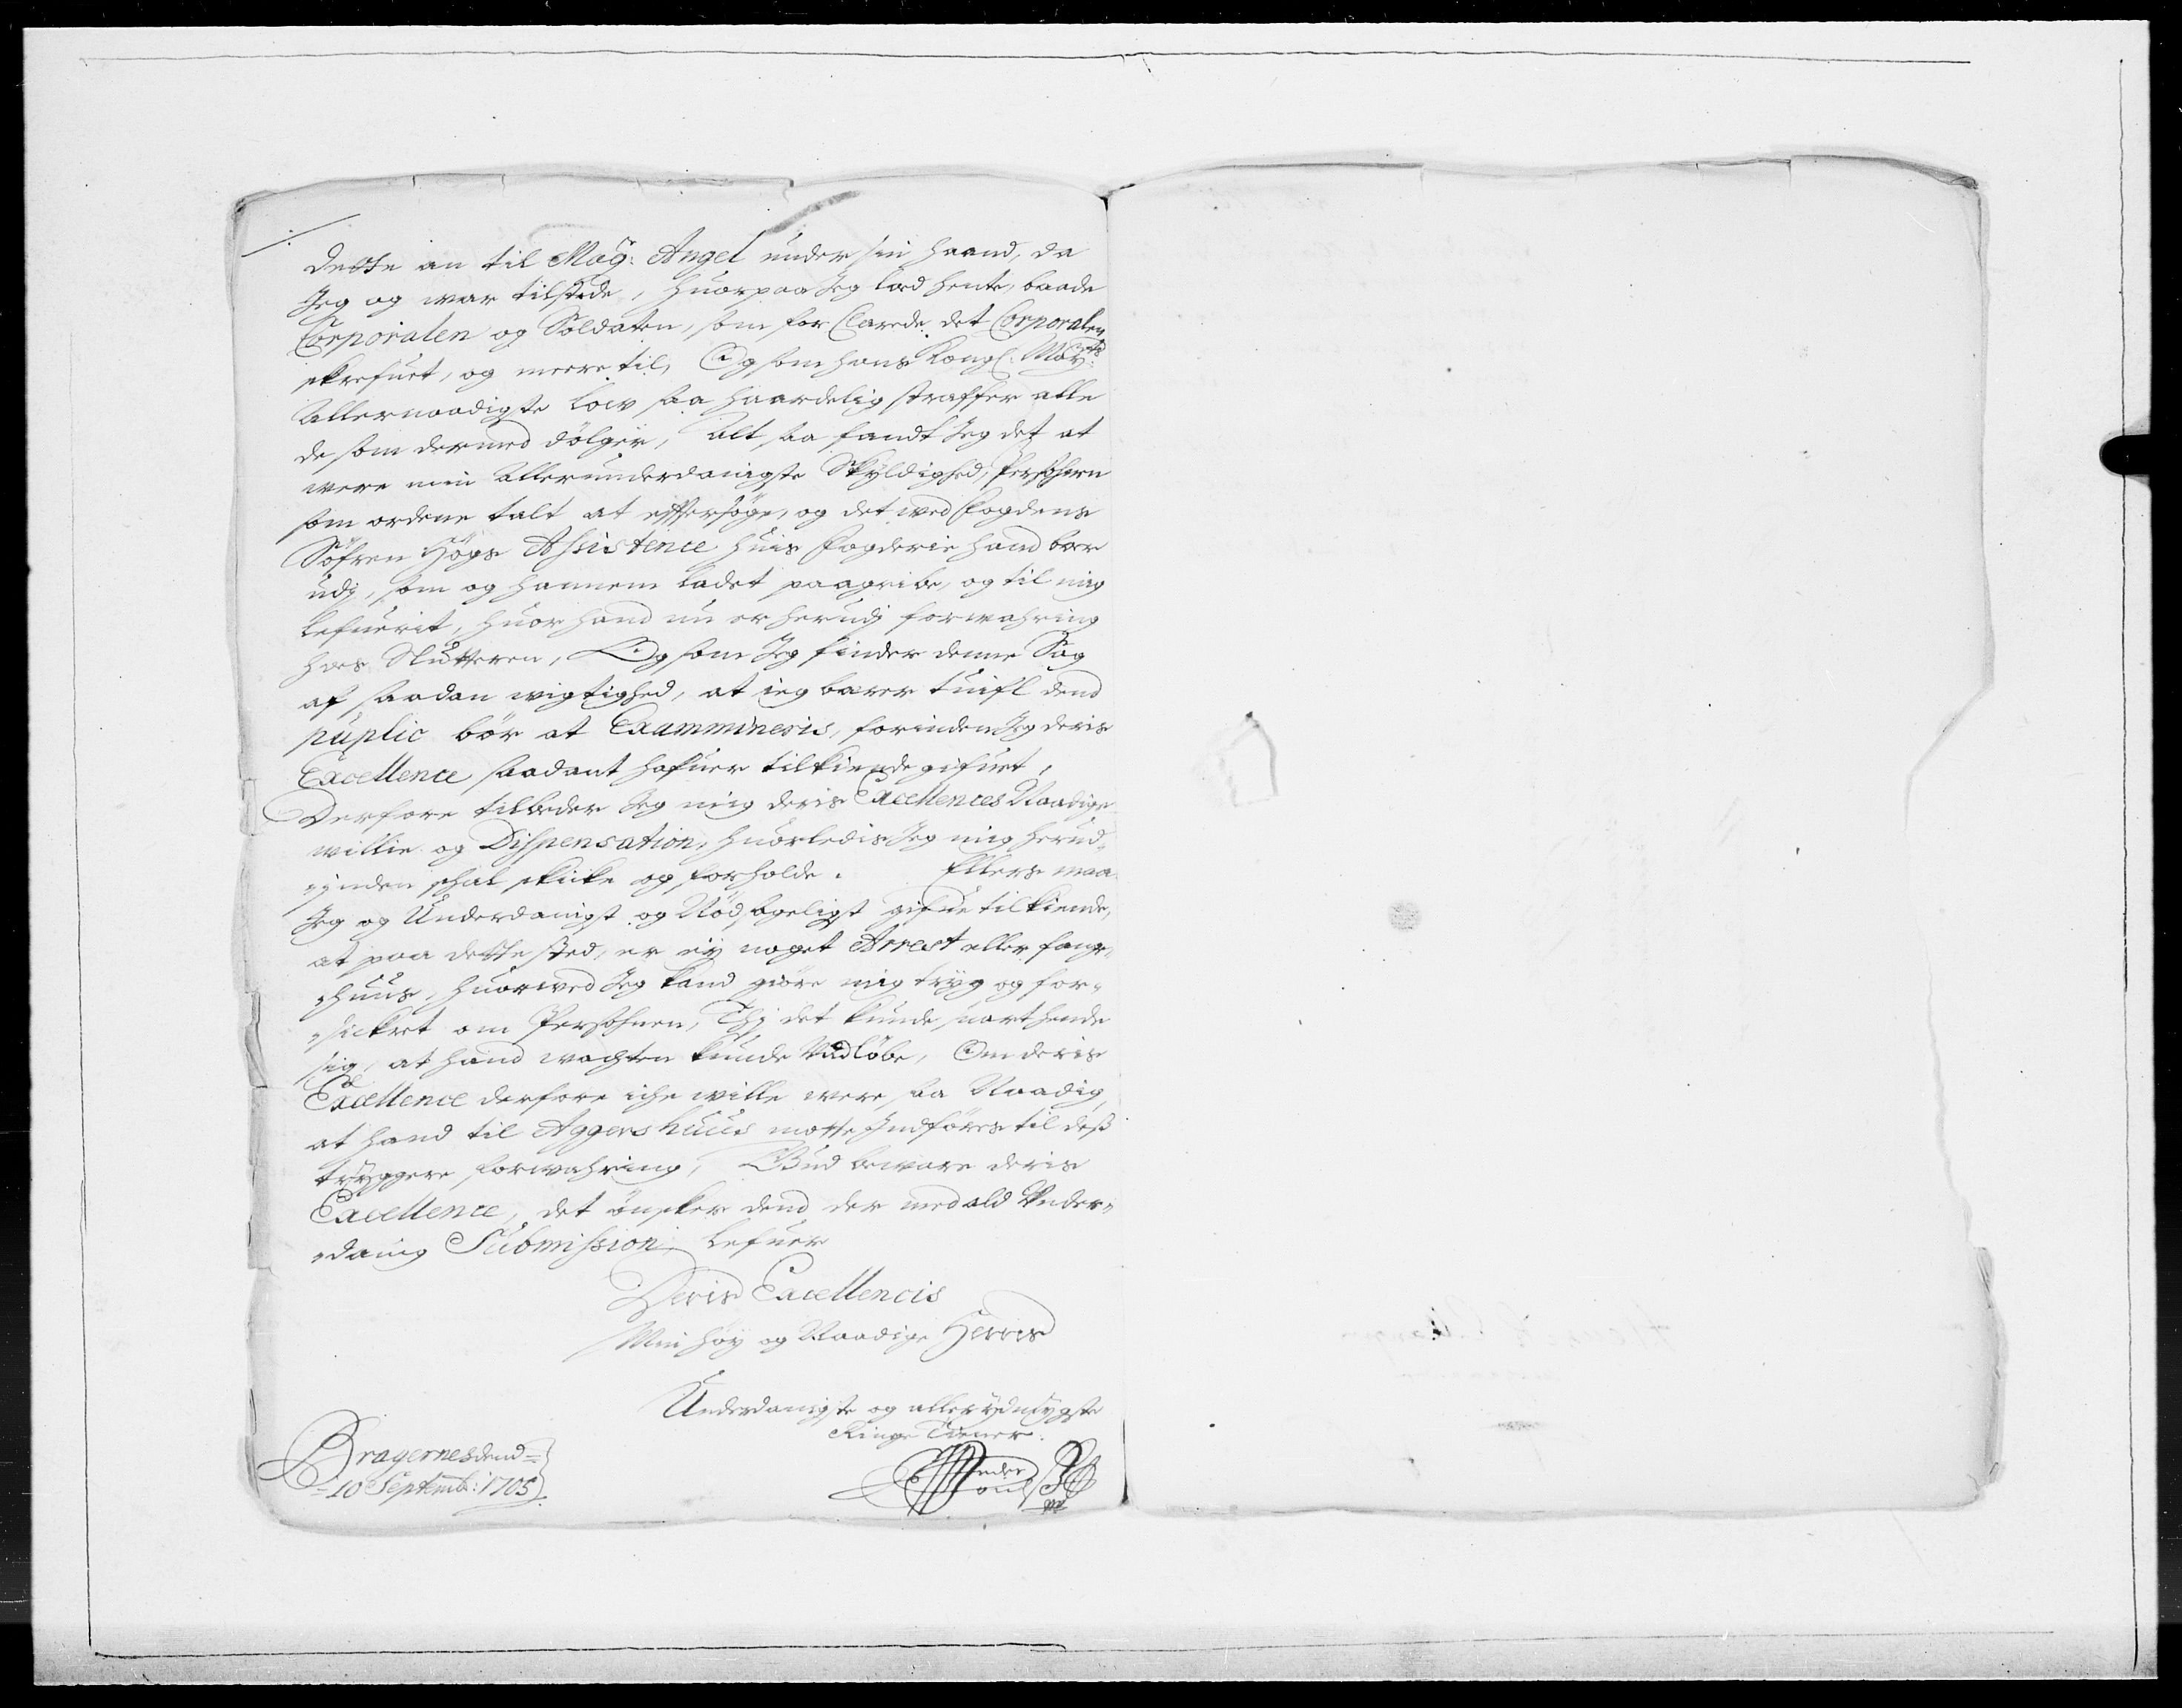 dette an til Mag: Angel under sin haand, da
Jeg og war tilstede, huorpaa Jeg lod hente, baade
Corporalen og Soldaten, som for Clarede det Corporalen
skrefuet, og meere til, Og som hans Kongl: May:ts
Allernaadigste low saa haardelig straffer alle
de som dermed dølger, Alt saa fandt Jeg det at
were min Allerunderdanigste Skyldighed, Persohnen
som ordene talt at efftersøge, og det wed fogdens
Søfren Høgs Assistence huis fogderie hand boer
udj, som og hannem ladet paagribe, og til mig
lefuerit, huor hand nu er herudj forwahring
hos Slutteren, Og som Jeg finder denne Sag
af saadan wigtighed, at ieg bærer tuifl dend
puplic bør at Exammineris, forinden Jeg deris
Excellence saadant hafuer tilkiende gifuet,
Derfore tilbeder Jeg mig deris Excellences Naadige
willie og Dispensation, huorledis Jeg mig herud-
jnden schal skicke og forholde. Ellers maa
Jeg og Underdanigst og Nødsageligst gifue tilkiende,
at paa dette sted, er ey noget Arrest eller fange,
huus, huorwed Jeg kand giøre mig tryg og for-
sickret om Persohnen, Thj det kunde snart hende
sig, at hand wagten kunde Undløbe, Om deris
Excellence derfore iche wille were saa Naadig,
at hand til Aggershuus motte Indføres til dess
tryggere forwahring, Gud beware deris
Excellence, det ønsker dend der med ald Under-
danig Submission lefuer
Deris Excellencis
Min høy og Naadige Herris
Underdanigste og allerydmygste
Ringe Tiener.
Bragernes dend
10 Septemb: 1705
Peder Poul